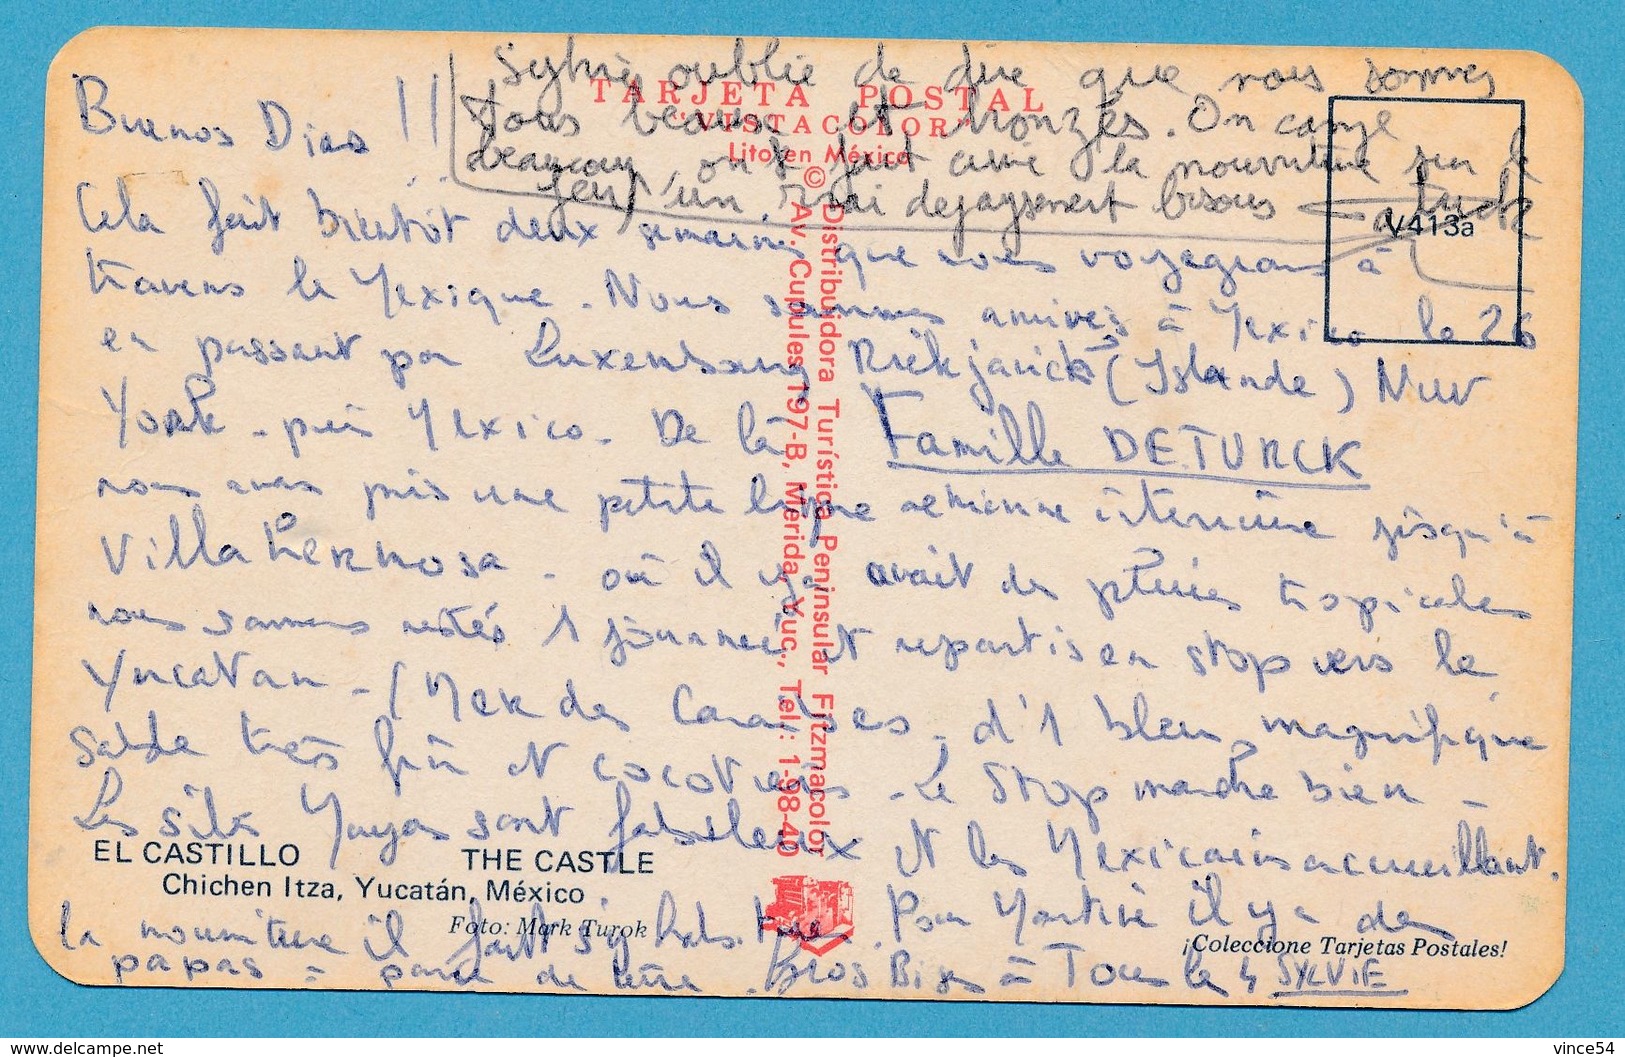 Sylvie oublie de dire que nous sommes
tous beaux et bronzés. On cause
beaucoup, on s'fait avec la nourriture sur le
feu, un vrai depaysement bisous
TARJETA POSTAL
"VISTACOLOR"
Lito en México
V413a
Buenos Dias !!
Cela fait bientôt deux semaines que nous voyageons à
travers le Mexique - Nous sommes arrivés à Mexico le 26
en passant par Luxembourg Rickjavick (Islande) New
York - puis Mexico - De là Famille DETURCK
nous avons pris une petite ligne aérienne intérieure jusqu'à
Villahermosa - où il y avait des pluies tropicales
nous sommes restés 1 journée et repartis en stop vers le
Yucatan - (Mer des Caraïbes - d'1 bleu magnifique
Sable très fin et cocotiers - Le Stop marche bien -
Les sites Mayas sont fabuleux et les Mexicains accueillants.
la nourriture il faut s'y habituer. Pour il y a des
papas = pomme de terre. Gros Bises à Tous les 4 SYLVIE
© Distribuidora Turística Peninsular Fitzmacolor
Av. Cupules 197-B, Mérida, Yuc., Tel.: 1-98-40
EL CASTILLO THE CASTLE
Chichen Itza, Yucatán, México
Foto: Mark Turok
¡Coleccione Tarjetas Postales!
delcampe.net
vince54